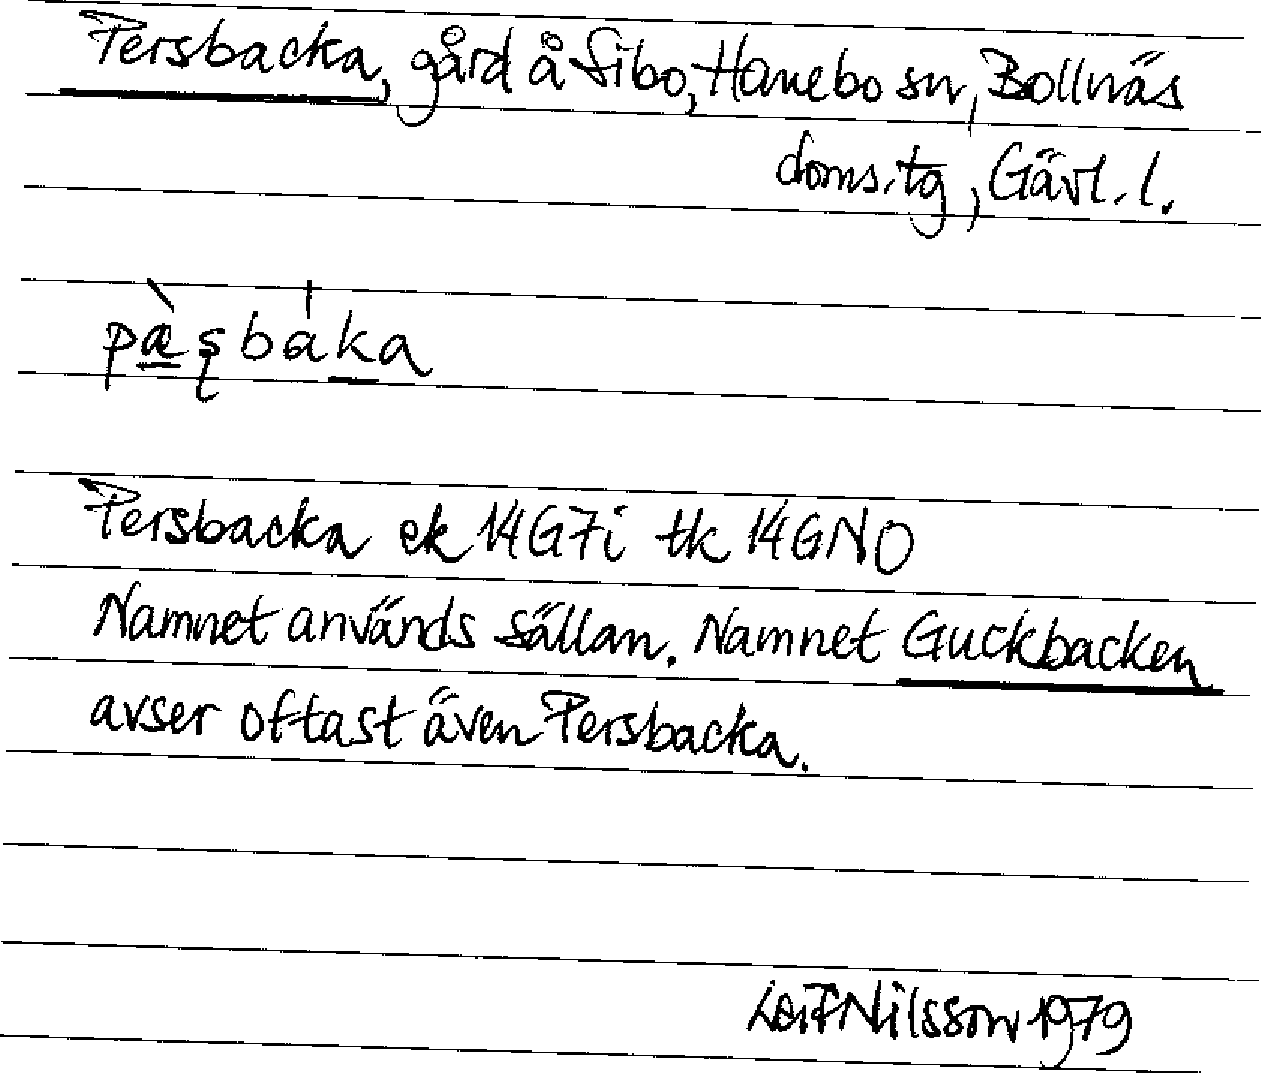 Persbacka, gård å Sibo, Hanebo sn, Bollnäs
doms.tg, Gävl. l.
pæ̀ʂbáka
Persbacka ek 14G7i tk 14GNO
Namnet används sällan. Namnet Guckbacken
avser oftast även Persbacka.
Leif Nilsson 1979